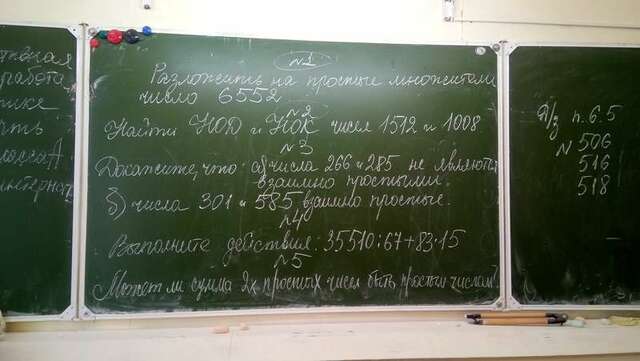 тивная
работа
тике
ить
класса А
интернат
№1
Разложить на простые множители
число 6552
№2
Найти НОД и НОК чисел 1512 и 1008
№3
Докажите, что: а) числа 266 и 285 не являются
взаимно простыми.
б) числа 301 и 585 взаимно простые.
№4
Выполните действия: 35510:67+83·15
№5
Может ли сумма 2х простых чисел быть простым числом?
Д/з п. 6.5
N 506
516
518